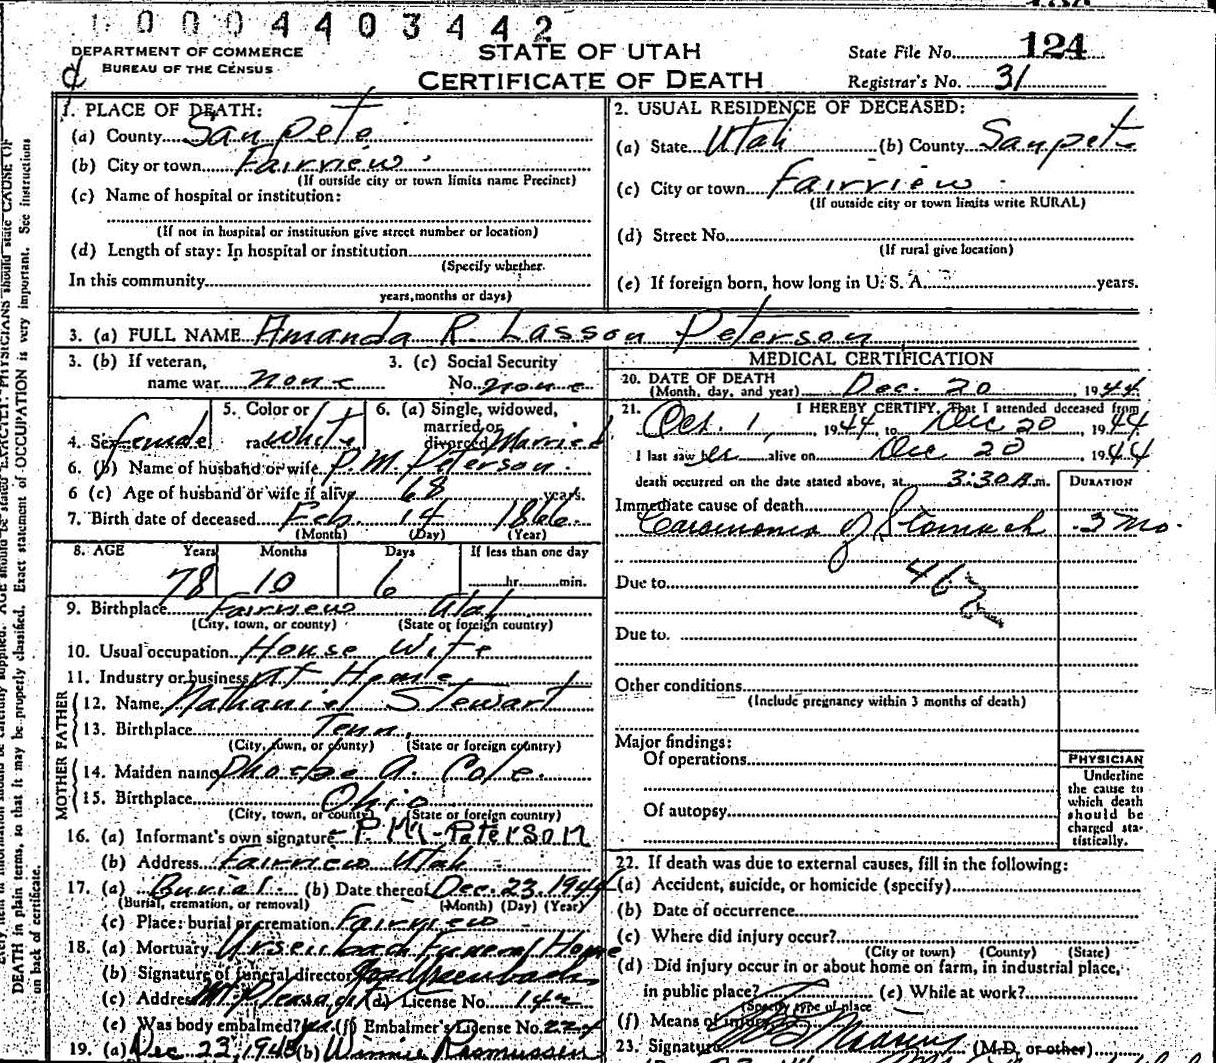 0004403442
DEPARTMENT OF COMMERCE
BUREAU OF THE CENSUS
STATE OF UTAH
CERTIFICATE OF DEATH
State File No. 124
Registrar's No. 31
1. PLACE OF DEATH:
(a) County Sanpete
(b) City or town Fairview
(If outside city or town limits name Precinct)
(c) Name of hospital or institution:
(If not in hospital or institution give street number or location)
(d) Length of stay: In hospital or institution
(Specify whether
In this community
years, months or days)
2. USUAL RESIDENCE OF DECEASED:
(a) State Utah (b) County Sanpete
(c) City or town Fairview
(If outside city or town limits write RURAL)
(d) Street No.
(If rural give location)
(e) If foreign born, how long in U. S. A. years.
3. (a) FULL NAME Amanda R. Lasson Peterson
3. (b) If veteran, name war none
3. (c) Social Security No. none
4. Sex female
5. Color or race white
6. (a) Single, widowed, married or divorced Married
6. (b) Name of husband or wife P. M. Peterson
6 (c) Age of husband or wife if alive 68 years.
7. Birth date of deceased Feb. 14 1866
(Month) (Day) (Year)
8. AGE Years Months Days If less than one day
78 10 6 hr. min.
9. Birthplace Fairview Utah
(City, town, or county) (State or foreign country)
10. Usual occupation House Wife
11. Industry or business At Home
FATHER
12. Name Nathaniel Stewart
13. Birthplace Tenn.
(City, town, or county) (State or foreign country)
MOTHER
14. Maiden name Phoebe A. Cole.
15. Birthplace Ohio
(City, town, or county) (State or foreign country)
16. (a) Informant's own signature P. M. Peterson
(b) Address Fairview Utah
17. (a) Burial (b) Date thereof Dec. 23. 1944
(Burial, cremation, or removal) (Month) (Day) (Year)
(c) Place: burial or cremation Fairview
18. (a) Mortuary Ursenbach Funeral Home
(b) Signature of funeral director Ursenbach
(c) Address Mt Pleasant (d) License No.
(e) Was body embalmed? (f) Embalmer's License No.
19. (a) Dec 23, 194 (b) Winnie Rasmussen
MEDICAL CERTIFICATION
20. DATE OF DEATH
(Month, day, and year) Dec. 20, 1944
21. I HEREBY CERTIFY, That I attended deceased from
Oct. 1, 1944 to Dec 20, 1944
I last saw her alive on Dec 20, 1944
death occurred on the date stated above, at 3:30 A.m.
DURATION
Immediate cause of death
Carcinoma of Stomach 3 mo.
Due to
Due to
Other conditions
(Include pregnancy within 3 months of death)
Major findings:
Of operations
Of autopsy
PHYSICIAN
Underline
the cause to
which death
should be
charged sta-
tistically.
22. If death was due to external causes, fill in the following:
(a) Accident, suicide, or homicide (specify)
(b) Date of occurrence
(c) Where did injury occur?
(City or town) (County) (State)
(d) Did injury occur in or about home on farm, in industrial place,
in public place? (e) While at work?
(Specify type of place
(f) Means of injury
23. Signature (M.D. or other)
DEATH in plain terms, so that it may be properly classified. Exact statement of OCCUPATION is very important. See instructions
on back of certificate.